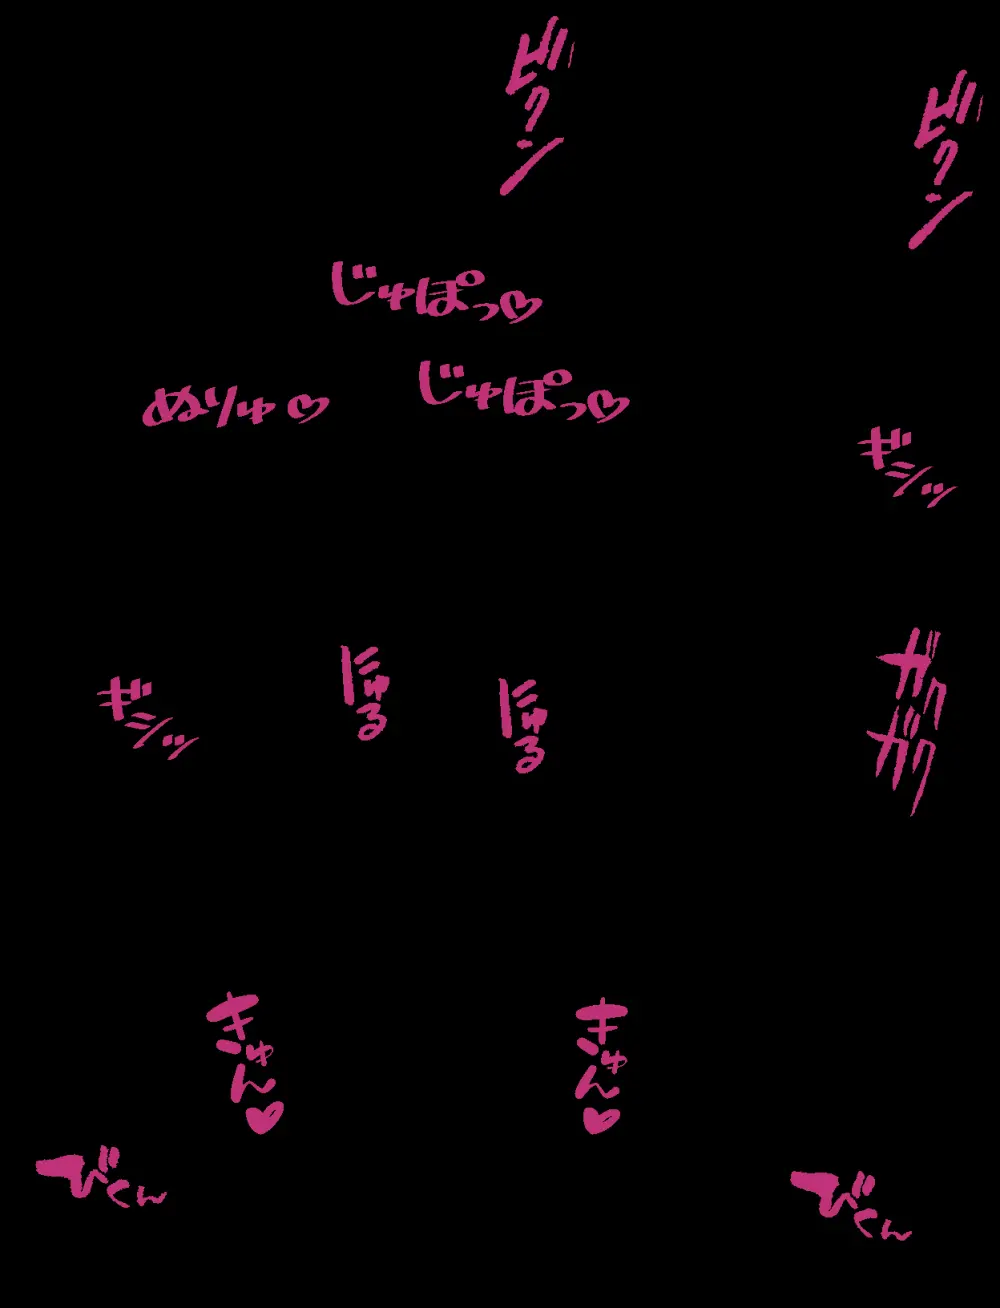 ビクン
ビクン
じゅぽっ♡
じゅぽっ♡
ぬりゅ♡
ギシッ
ガクガク
にゅる
にゅる
ギシッ
きゅん♥
きゅん♥
びくん
びくん